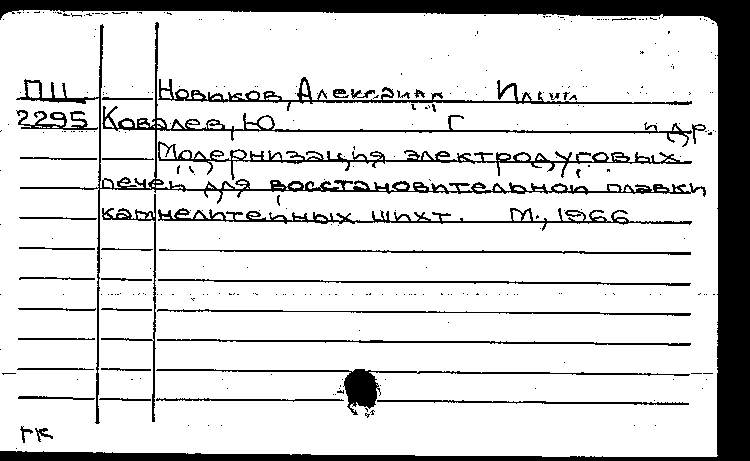 П11 Новиков, Александр Ильич
2295 Ковалев, Ю Г и др.
Модернизация электродуговых
печей для восстановительной плавки
камнелитейных шихт. М., 1966
ГК